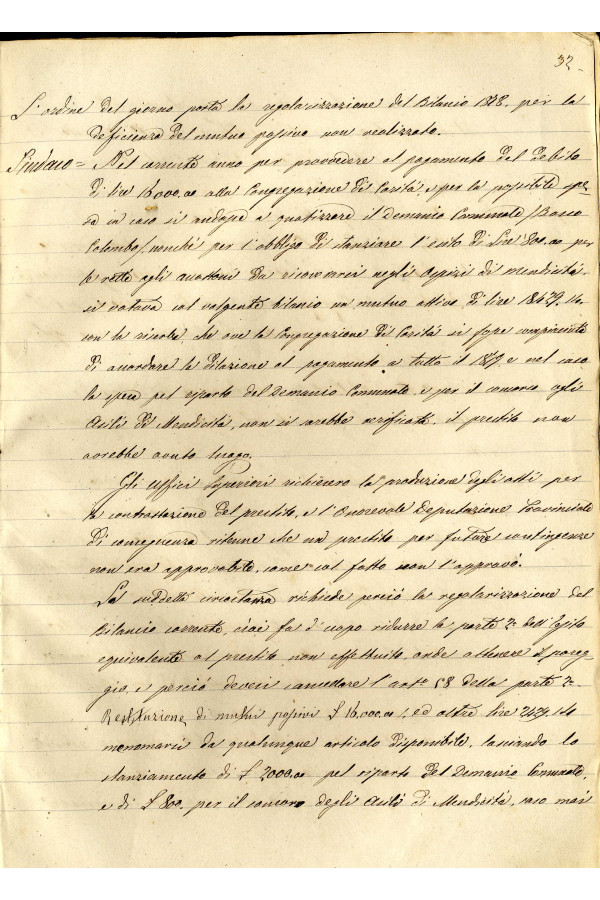 32
L'ordine del giorno porta la regolarizzazione del Bilancio 1878. per la
deficienza del mutuo passivo non realizzato.
Sindaco = Nel corrente anno per provvedere al pagamento del debito
di lire 16,000.00 alla Congregazione di Carità e per la possibile spe-
sa in caso si andasse a quotizzare il Demanio Comunale / Bosco
Colombo / nonché per l'obbligo di stanziare l'esito di Lire 800.00 per
le rette agli accattoni da ricoverarsi negli Ospizi di mendicità.
si votava col volgente bilancio un mutuo attivo di lire
con la riserva che ove la Congregazione di Carità si fosse compiaciuta
di accordare la dilazione al pagamento a tutto il 1879 e nel caso
la spesa pel riparto del Demanio Comunale, e per il concorso agli
Asili di Mendicità, non si sarebbe verificata, il prestito non
avrebbe avuto luogo.
Gli Uffici Superiori richiesero la produzione degli atti per
la contrattazione del prestito, e l'Onorevole Deputazione Provinciale
di conseguenza ritenne che un prestito per future contingenze
non era approvabile, come col fatto non l'approvò.
La suddetta circostanza richiede perciò la regolarizzazione del
Bilancio corrente, cioè fa d'uopo ridurre la parte 2a dell'Esito
equivalente al prestito non effettuito, onde ottenere il pareg-
gio, e perciò devesi cancellare l'arto 58 della parte 2a
Restituzione di mutui passivi £ 16,000.00, ed altre lire
menomarsi da qualunque articolo disponibile, lasciando lo
stanziamento di £ 2000.00 pel riparto del Demanio Comunale,
e di £ 800. per il concorso degli Asili di Mendicità, caso mai